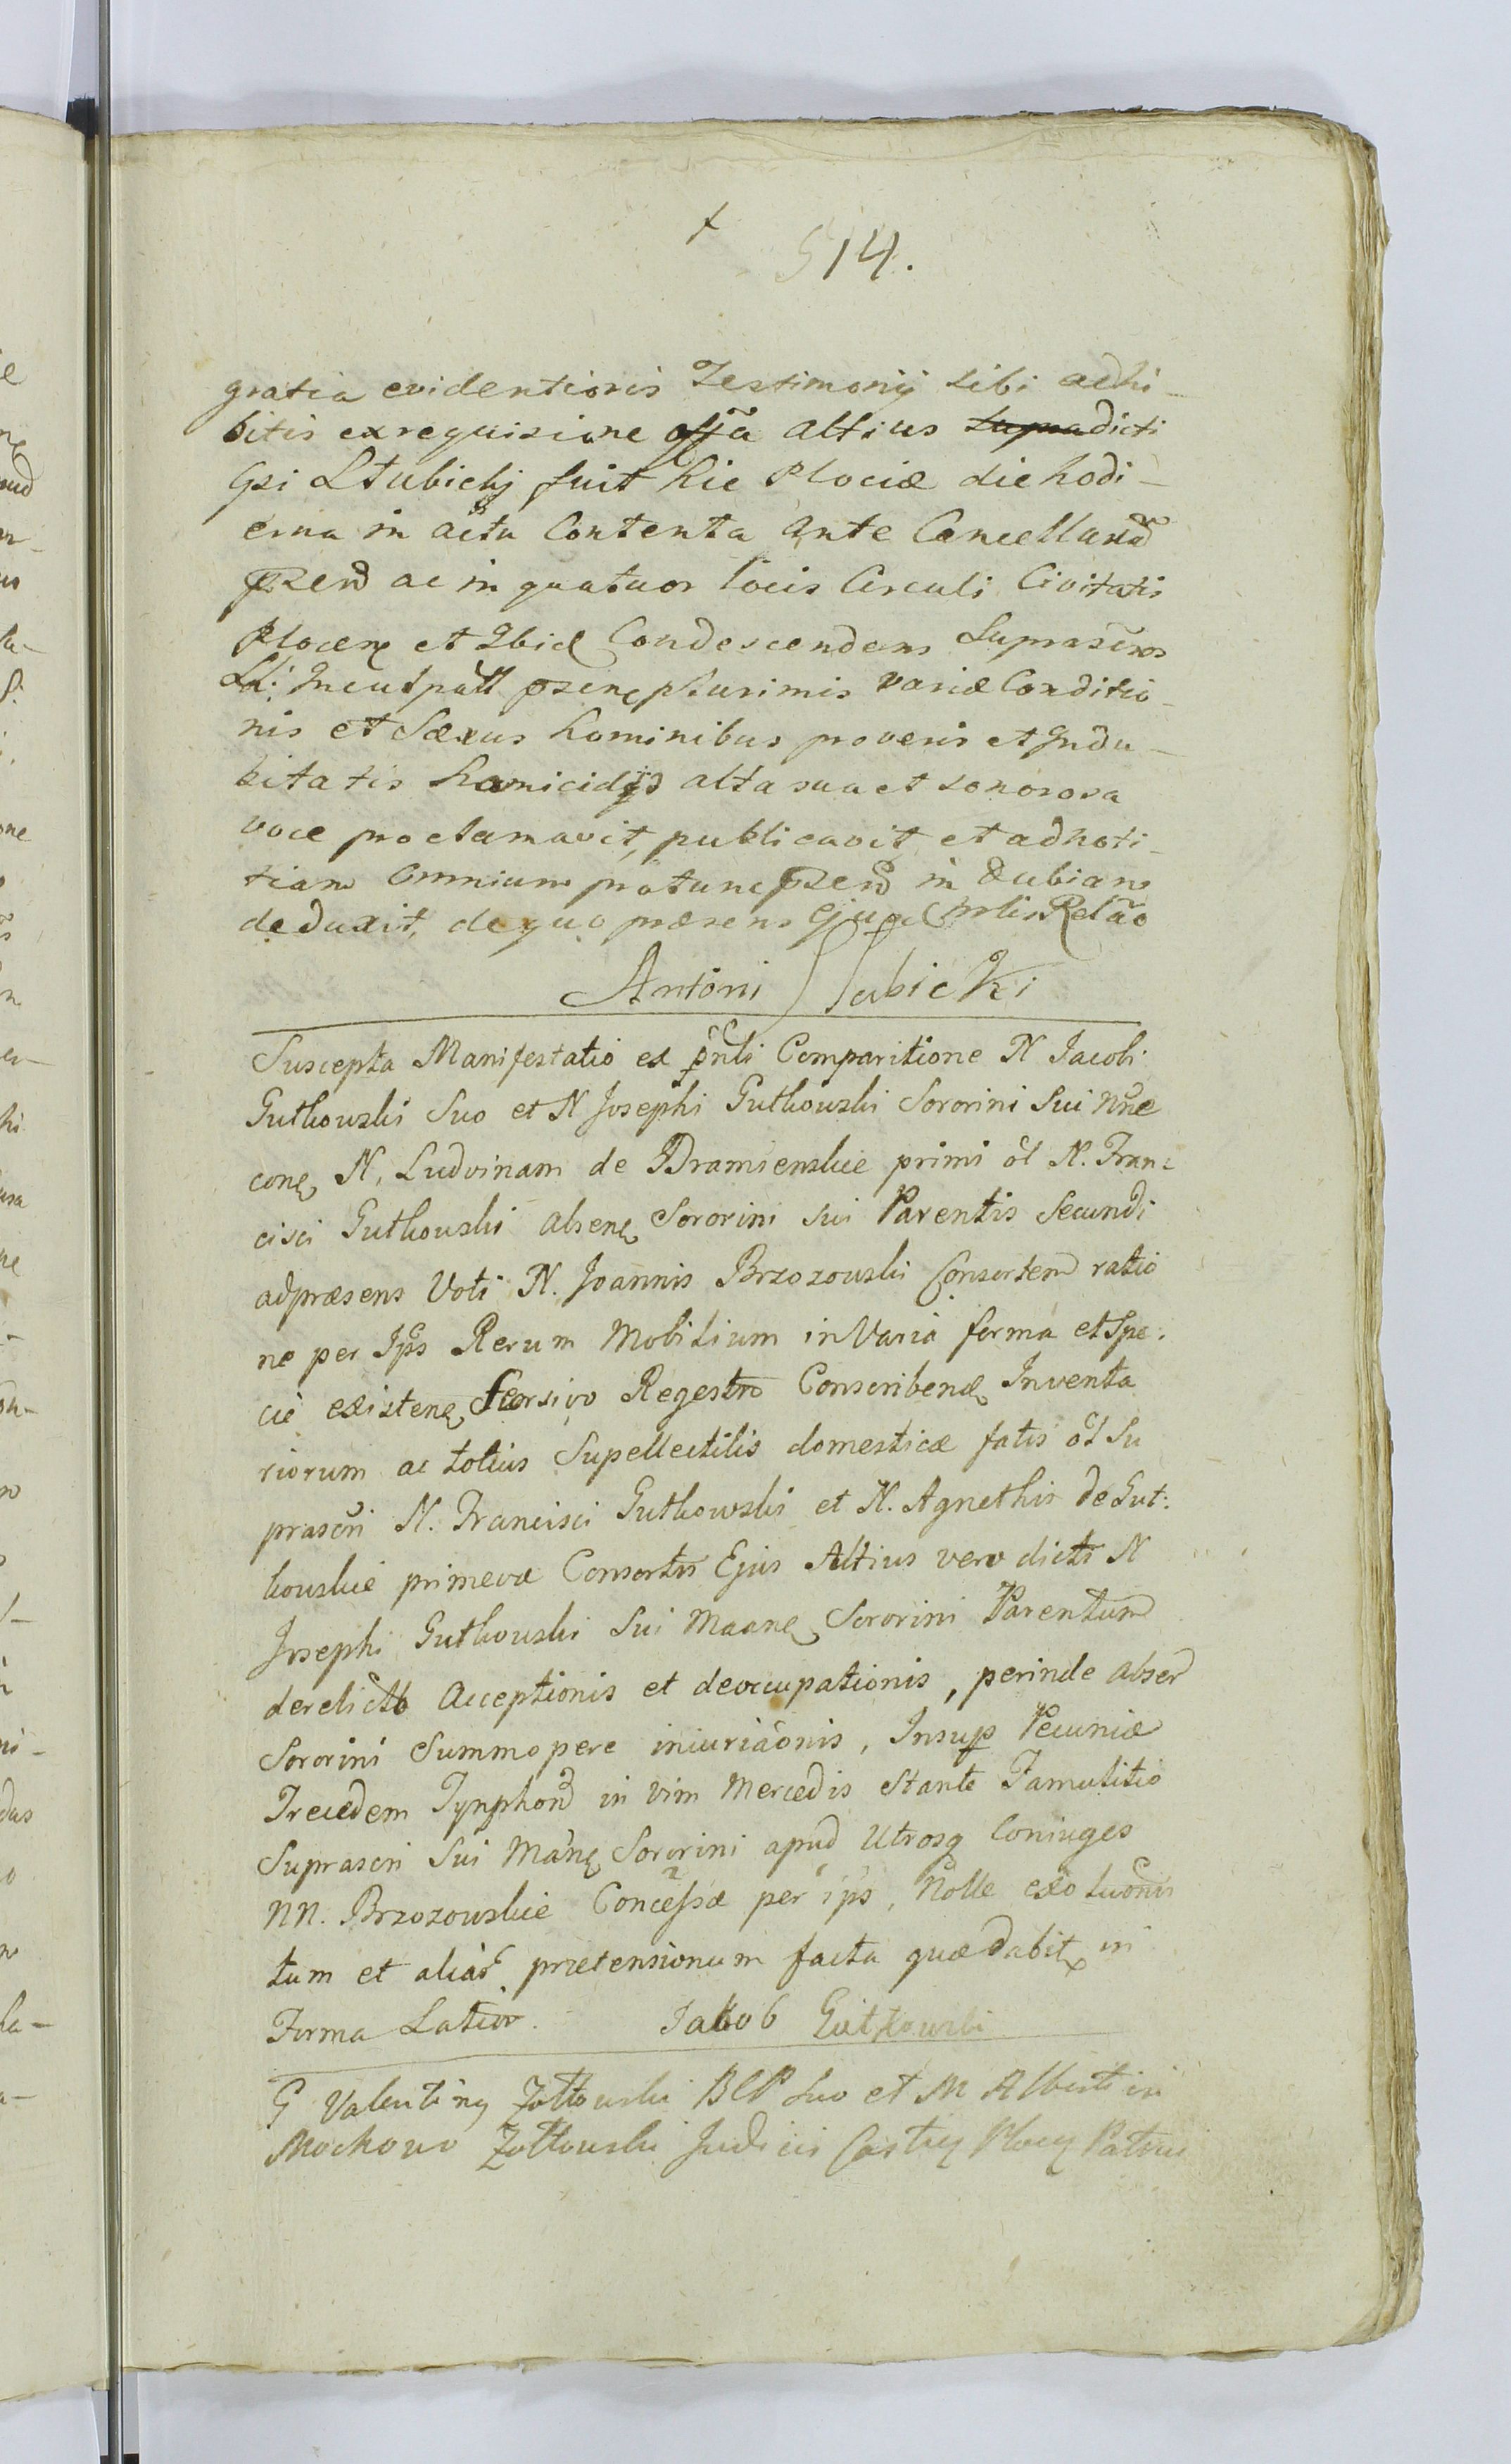 514.
gratia evidentioris Testimonij sibi adhi-
bitis ex requisione offã altius supradicti
Gsi Słubickj fuit hic Plociæ die hodi-
erna in actu Contenta ante Cancellariã
pzen ac in quatuor locis Circuli Civitatis
Plocen et Ibid Condescendens Suprascros
Incul patt pzen plurimis variæ Conditio
nis et Sexus hominibus pro veris et Indu-
bitatis homicidijs alta sua et sonorosa
voce proclamavit, publicavit et ad noti-
tiam Omnium protunc pzen in dubiam
deduxit, de quo præsens Ejusd Mlis Relão
Antoni Słubicki
Suscepta Manifestatio ex pnli Comparitione N Jacobi
Gutkowski Suo et N Josephi Gutkowski Sororini Sui Nne
cone N. Ludvinam de Dramienskie primi ol N. Fran-
cisci Gutkowski absene Sororini sui Parentis Secundi
adpræsens Voti N. Joannis Brzozowski Consortem ratio
ne per Ips Rerum Mobilium in Varia forma et Spe.
cie existene Seorsivo Regestro Conscribene Inventa
riorum ac totius Supellectilis domesticæ fatis ol Su
prascri N. Francisci Gutkowski et N. Agnethis de Gut:
kowskie primevæ Consortis Ejus Altius vero dicti N
Josephi Gutkowski Sui Maane Sororini Parentum
derelicto Acceptionis et deoccupationis, perinde absen
Sororini Summopere iniuriaonis, Insup Pecuniæ
Trecedem Tynphon in vim Mercedis Stante Famulitio
Suprascri Sui Mane Sororini apud Utrosq Coniuges
NN. Brzozowskie Concessæ per ips, Nolle exoluonis
tum et aliar prætensionum facta quæ dabit in
Forma Latior. Jakob Gutkowski
G Valentiny Zółtowski BCP Suo et M Alberti in
Mochowo Zołtowski Judicis Castry Plocy Patrui